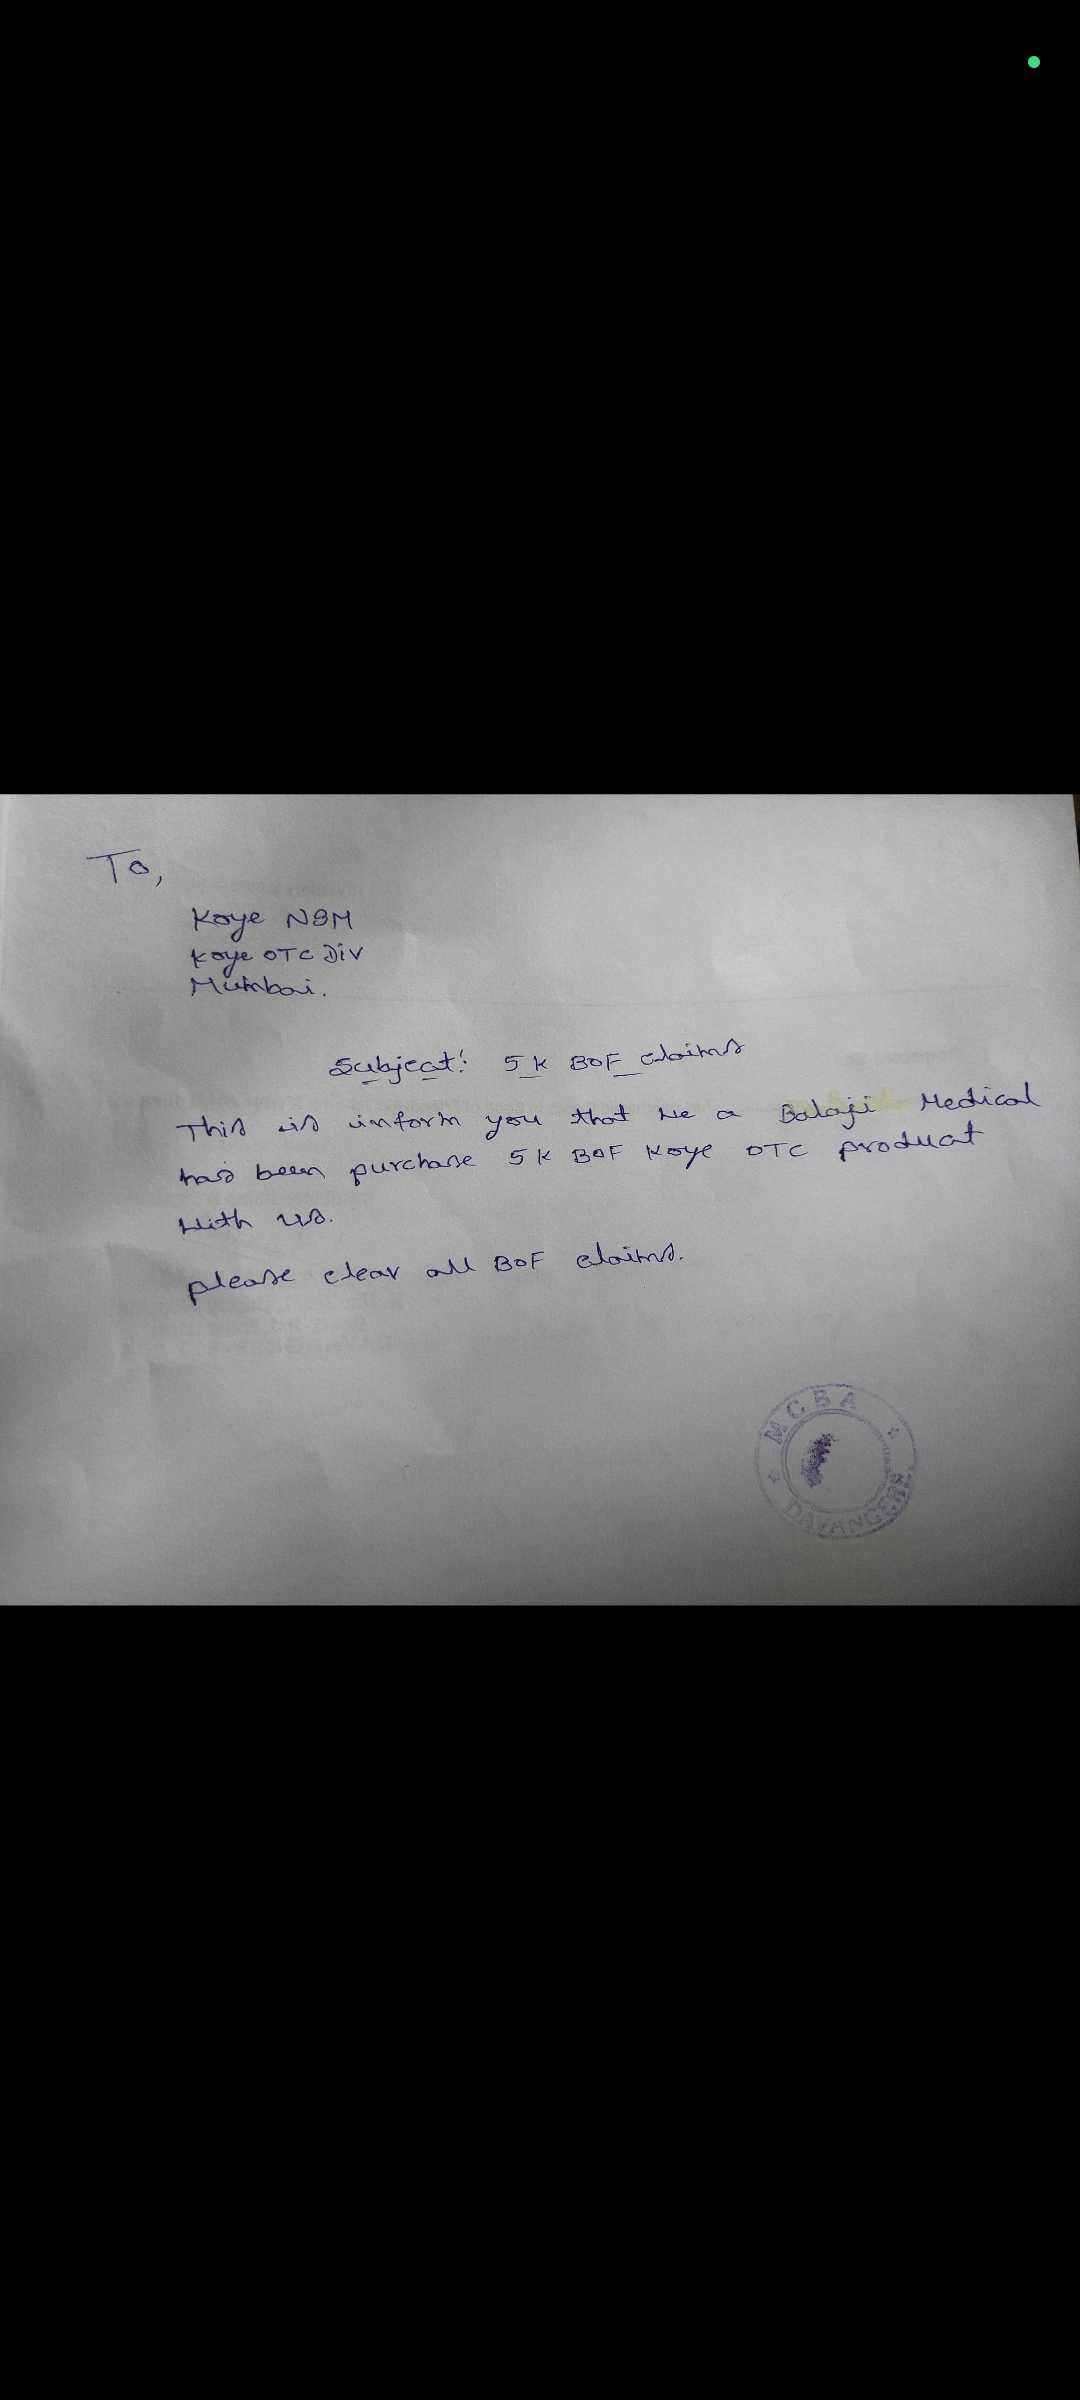 To,
Koye NSM
Koye OTC Div
Mumbai.
Subject: 5K BOF claims
This is inform you that We a Balaji Medical
has been purchase 5K BOF Koye OTC product
With us.
please clear all BOF claims.
MCBA
DAVANGERE